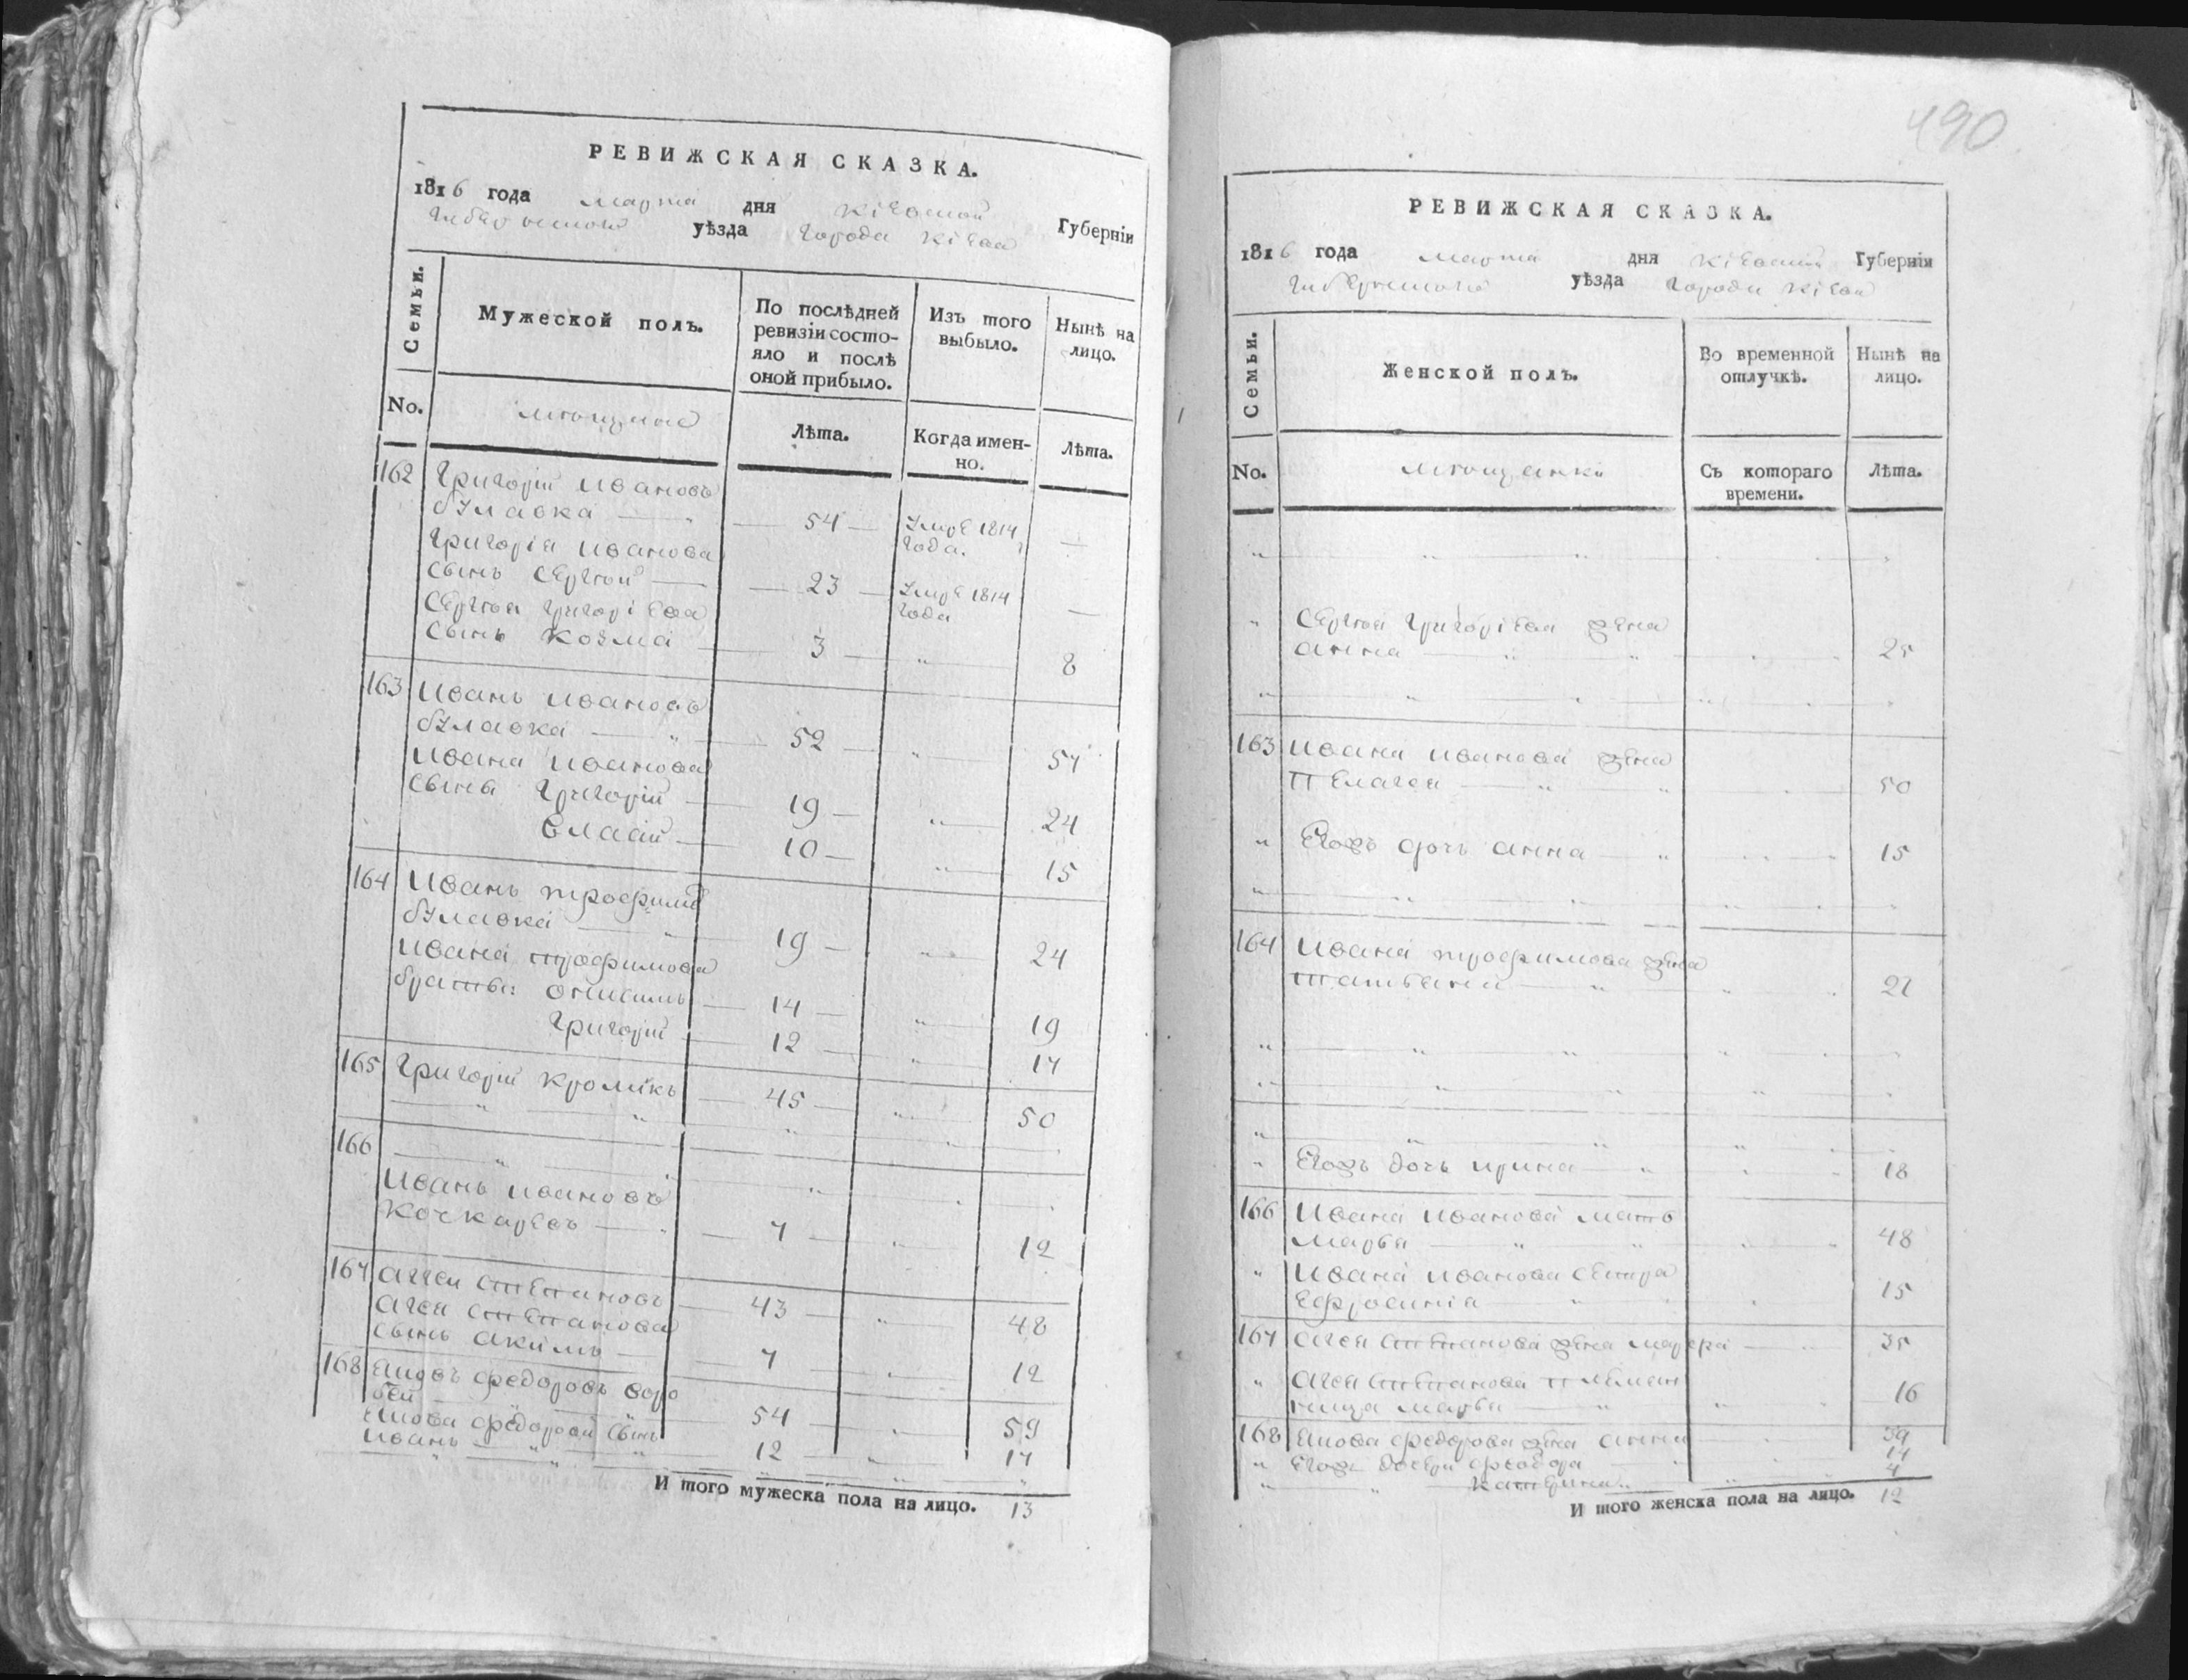 РЕВИЖСКАЯ СКАЗКА.
1816 года марта дня Кіевской Губерніи
уѣзда города Кіева
Семьи.
Мужеской полъ.
По послѣдней ревизіи состояло и послѣ оной прибыло.
Изъ того выбыло.
Нынѣ на лицо.
No.
мѣщане
Лѣта.
Когда именно.
Лѣта.
162 Григорій Ивановъ
булавка — 54 — умре 1814 года. —
Григорія Иванова
сынъ Сергѣй — 23 — умре 1814 года —
Сергѣя Григоріева
сынъ Козма — 3 — " — 8
163 Иванъ Ивановъ
булавка — " — 52 — " — 57
Ивана Иванова
сыны Григорій — 19 — " — 24
Власій — 10 — " — 15
164 Иванъ трофимовъ
булавка — 19 — " — 24
Ивана трофимова
братья Онисимъ — 14 — " — 19
Григорій — 12 — " — 17
165 Григорій Кроликъ — 45 — " — 50
166
Иванъ Ивановъ
Кочкаревъ — 7 — " — 12
167 Аггей Степановъ — 43 — " — 48
Агея Степанова
сынъ Акимъ — 7 — " — 12
168 федоровъ воро
бей — 54 — " — 59
сынъ
Иванъ — 12 — " — 17
И того мужеска пола на лицо. 13
490
РЕВИЖСКАЯ СКАЗКА.
1816 года марта дня Кіевской Губерніи
уѣзда города Кіева
Семьи.
Женской полъ.
Во временной отлучкѣ.
Нынѣ на лицо.
No.
мѣщанки
Съ котораго времени.
Лѣта.
" Сергѣя Григоріева жена
анна — " — 25
163 Ивана Иванова жена
Пелагея — " — 50
" Егожъ дочь анна — " — 15
164 Ивана трофимова жена
татьяна — " — 21
" Егожъ дочь ирина — " — 18
166 Ивана Иванова мать
марья — " — 48
" Ивана Иванова сестра
Ефросинія — 15
167 Агея Степанова жена — 35
" Агея Степанова племян
ница марья — " — 16
168 федорова жена анна — 39
" Егожъ дочери феодора — 14
" Катерина — 4
И того женска пола на лицо. 12